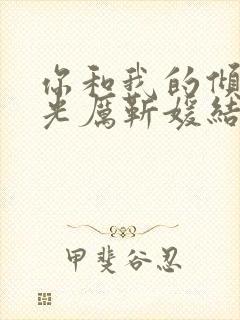 你和我的倾
光厲靳媛結
甲斐谷忍